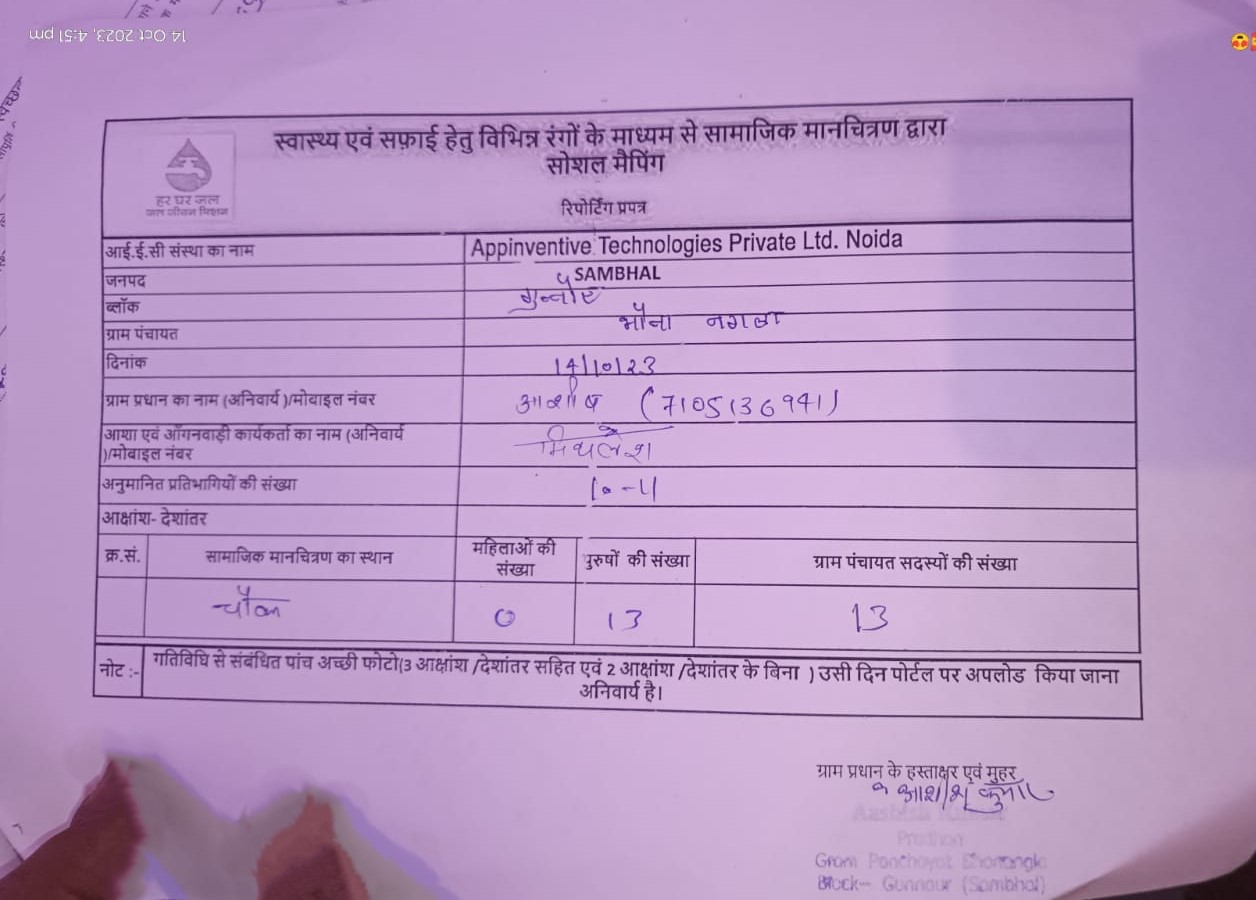 14 Oct 2023, 4:51 pm
स्वास्थ्य एवं सफ़ाई हेतु विभिन्न रंगों के माध्यम से सामाजिक मानचित्रण द्वारा
सोशल मैपिंग
रिपोर्टिंग प्रपत्र
हर घर जल
जल जीवन मिशन
आई.ई.सी संस्था का नाम Appinventive Technologies Private Ltd. Noida
जनपद SAMBHAL
ब्लॉक गुन्नौर
ग्राम पंचायत भौना नगला
दिनांक 14/10/23
ग्राम प्रधान का नाम (अनिवार्य )/मोबाइल नंबर आशीष (7105136941)
आशा एवं आँगनवाड़ी कार्यकर्ता का नाम (अनिवार्य
)/मोबाइल नंबर मिथलेश
अनुमानित प्रतिभागियों की संख्या
आक्षांश- देशांतर
क्र.सं. सामाजिक मानचित्रण का स्थान महिलाओं की संख्या पुरुषों की संख्या ग्राम पंचायत सदस्यों की संख्या
चौक 0 13 13
नोट :- गतिविधि से संबंधित पांच अच्छी फोटो(3 आक्षांश /देशांतर सहित एवं 2 आक्षांश /देशांतर के बिना ) उसी दिन पोर्टल पर अपलोड किया जाना
अनिवार्य है।
ग्राम प्रधान के हस्ताक्षर एवं मुहर
कुमार
Pradhan
Gram Panchayat
Block- Gunnour (Sambhal)